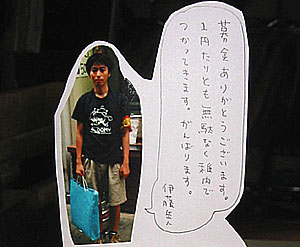 募金ありがとうございます。
1円たりとも無駄なく稚内で
つかってきます。がんばります。
伊藤岳人